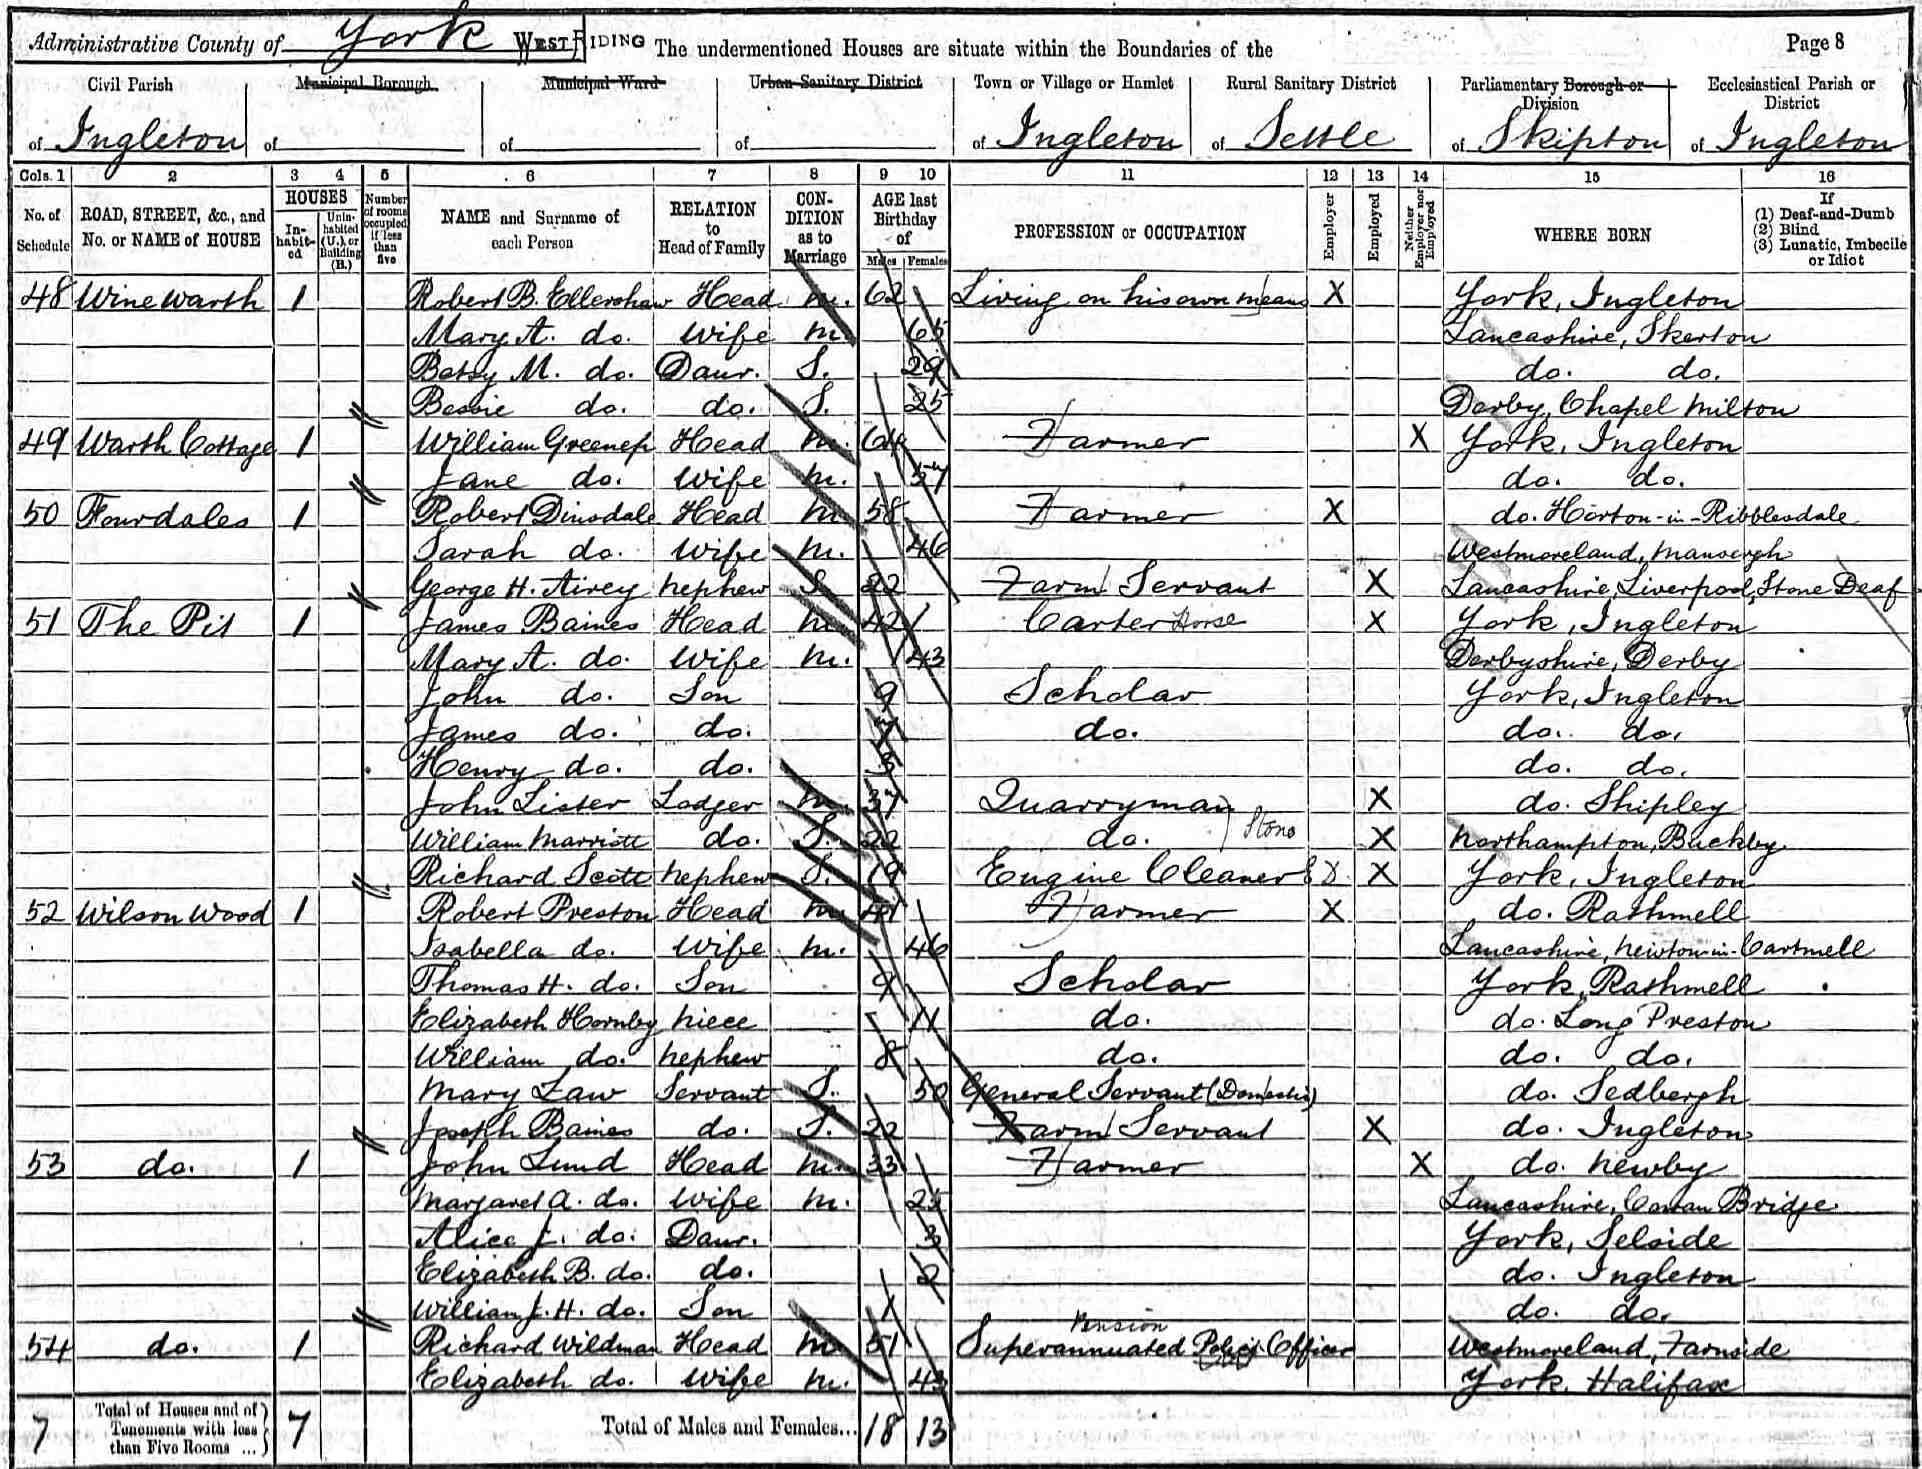 Administrative County of York WEST RIDING The undermentioned Houses are situate within the Boundaries of the Page 8
Civil Parish Municipal Borough Municipal Ward Urban Sanitary District Town or Village or Hamlet Rural Sanitary District Parliamentary Borough or Division Ecclesiastical Parish or District
of Ingleton of of of of Ingleton of Settle of Skipton of Ingleton
Cols. 1 2 3 4 5 6 7 8 9 10 11 12 13 14 15 16
No. of Schedule ROAD, STREET, &c., and No. or NAME of HOUSE HOUSES In-habit-ed Unin-habited (U.), or Building (B.) Number of rooms occupied if less than five NAME and Surname of each Person RELATION to Head of Family CON-DITION as to Marriage AGE last Birthday of Males Females PROFESSION or OCCUPATION Employer Employed Neither Employer nor Employed WHERE BORN If (1) Deaf-and-Dumb (2) Blind (3) Lunatic, Imbecile or Idiot
48 Winewarth 1 Robert B. Ellershaw Head M. 62 Living on his own means X York, Ingleton
Mary A. do. Wife M. 65 Lancashire, Skerton
Betsy M. do. Daur. S. 29 do. do.
Bessie do. do. S. 25 Derby, Chapel Milton
49 Warth Cottage 1 William Greenep Head M. 64 Farmer X York, Ingleton
Jane do. Wife M. 57 do. do.
50 Fourdales 1 Robert Dinsdale Head M 58 Farmer X do. Horton-in-Ribblesdale
Sarah do. Wife M. 46 Westmoreland, Mansergh
George H. Airey Nephew S 22 Farm Servant X Lancashire, Liverpool, Stone Deaf
51 The Pit 1 James Baines Head M 42 Carter Horse X York, Ingleton
Mary A. do. Wife M. 43 Derbyshire, Derby
John do. Son 9 Scholar York, Ingleton
James do. do. 7 do. do. do.
Henry do. do. 3 do. do.
John Lister Lodger M. 37 Quarryman X do. Shipley
William Marriott do. S. 22 do. Stone X Northampton, Buckby
Richard Scott Nephew S. 19 Engine Cleaner X York, Ingleton
52 Wilson Wood 1 Robert Preston Head M 41 Farmer X do. Rathmell
Isabella do. Wife M. 46 Lancashire, Newton-in-Cartmell
Thomas H. do. Son 9 Scholar York, Rathmell
Elizabeth Hornby Niece 11 do. do. Long Preston
William do. Nephew 8 do. do. do.
Mary Law Servant S. 50 General Servant (Domestic) do. Sedbergh
Joseph Baines do. S. 22 Farm Servant X do. Ingleton
53 do. 1 John Lund Head M. 33 Farmer X do. Newby
Margaret A. do. Wife M. 25 Lancashire, Cowan Bridge
Alice J. do. Daur. 3 York, Selside
Elizabeth B. do. do. 2 do. Ingleton
William J. H. do. Son 1 do. do.
Pension
54 do. 1 Richard Wildman Head M 51 Superannuated Police Officer Westmoreland, Farnside
Elizabeth do. Wife M. 43 York, Halifax
7 Total of Houses and of Tenements with less than Five Rooms ... 7 Total of Males and Females... 18 13